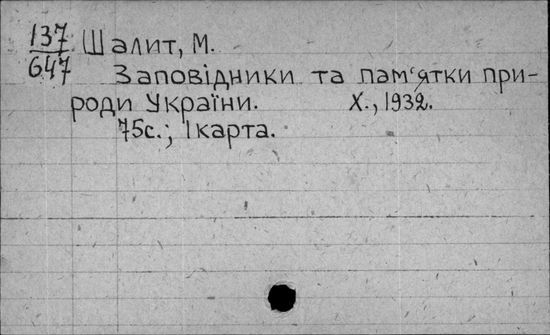 137 Шалит, М.
647 Заповідники та пам'ятки при-
роди України. Х., 1932.
75с.; 1 карта.